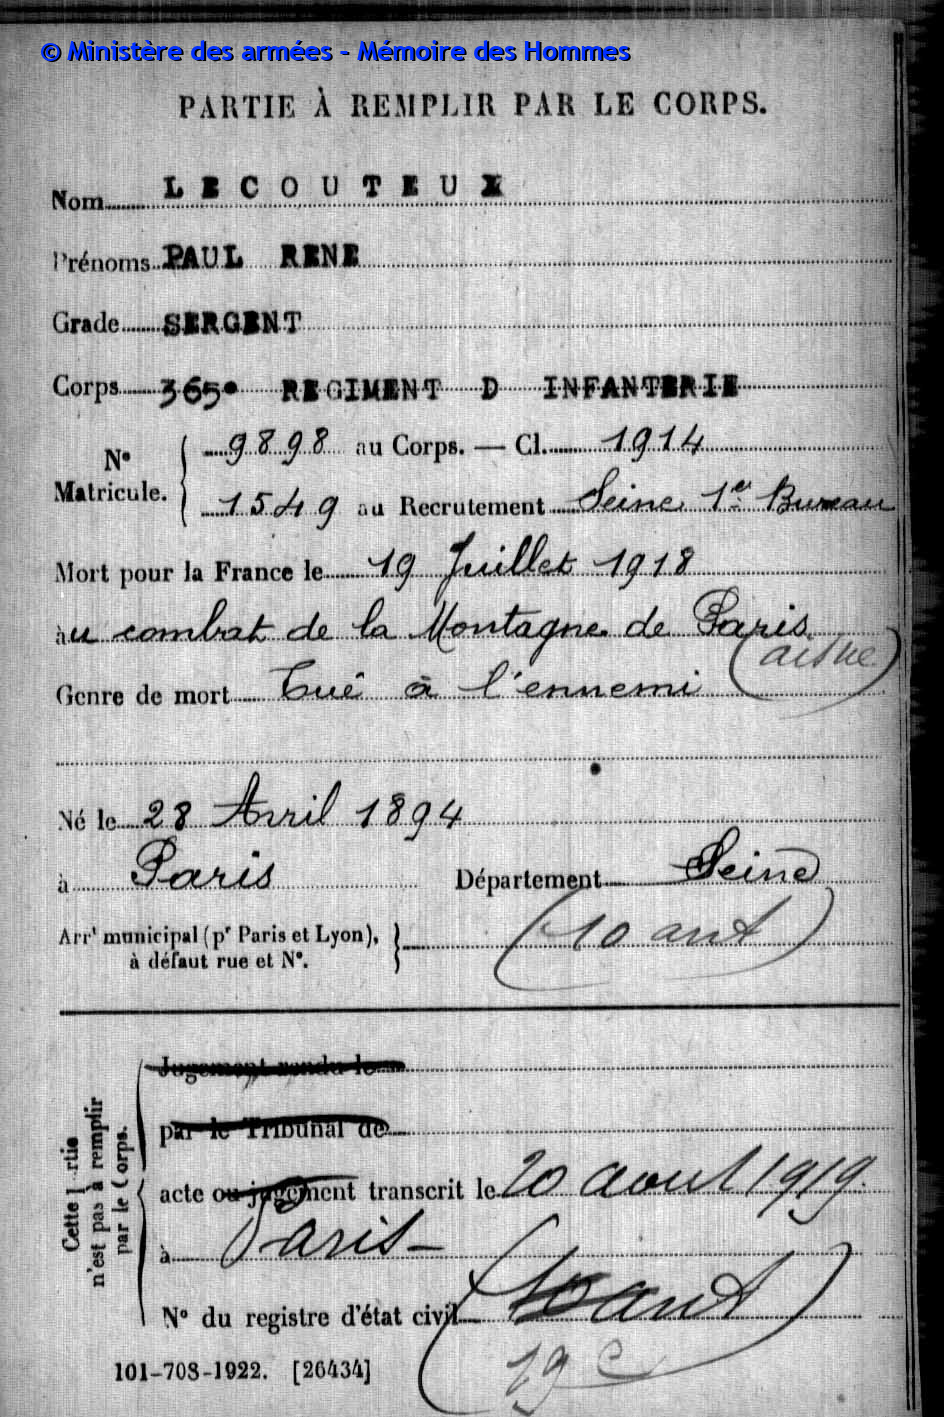 © Ministère des armées - Mémoire des Hommes
PARTIE À REMPLIR PAR LE CORPS.
Nom LECOUTEUX
Prénoms PAUL RENE
Grade SERGENT
Corps 365e REGIMENT D INFANTERIE
N° Matricule. 9898 au Corps. — Cl. 1914
1549 au Recrutement Seine 1er Bureau
Mort pour la France le 19 Juillet 1918
au combat de la Montagne de Paris
(aisne)
Genre de mort Tué à l'ennemi
Né le 28 Avril 1894
à Paris Département Seine
Arrt municipal (pr Paris et Lyon), à défaut rue et N°. (10 arrt)
Cette partie n'est pas à remplir par le Corps.
Jugement rendu le
par le Tribunal de
acte ou jugement transcrit le 20 aout 1919.
à Paris –
N° du registre d'état civil (10 arrt)
19e
101-708-1922. [26434]